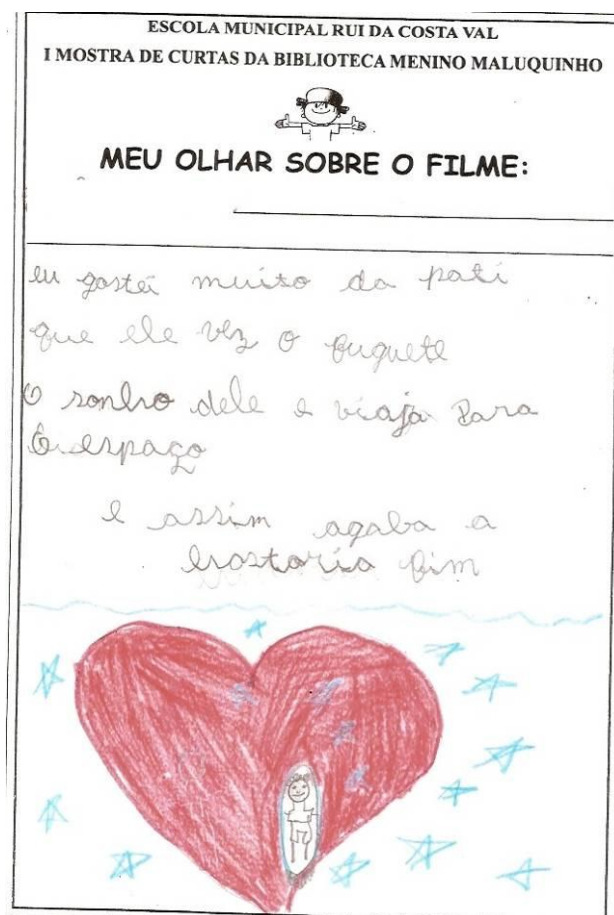 ESCOLA MUNICIPAL RUI DA COSTA VAL
I MOSTRA DE CURTAS DA BIBLIOTECA MENINO MALUQUINHO
MEU OLHAR SOBRE O FILME:
eu gostei muito da pati
que ele vez o fuguete
O sonho dele e viaja Para
O espaço
e assim agaba a
hostoria fim